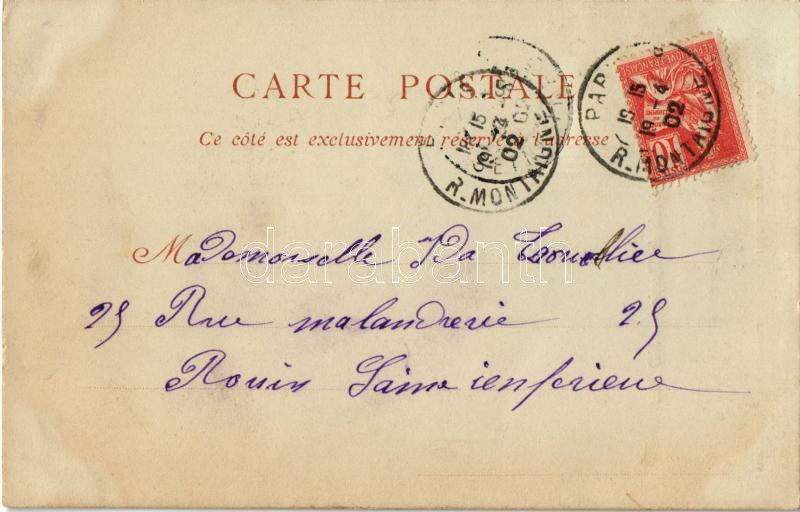 CARTE POSTALE
Ce côté est exclusivement réservé à l'adresse
PARIS
19 15
19 - 4
02
R. MONTAIGNE
PAR
19 15
19 - 4
02
R. MONTAIGNE
10
Mademoiselle Ida
25 Rue malandrerie 25
Rouin Saine ienferieue
darabanth